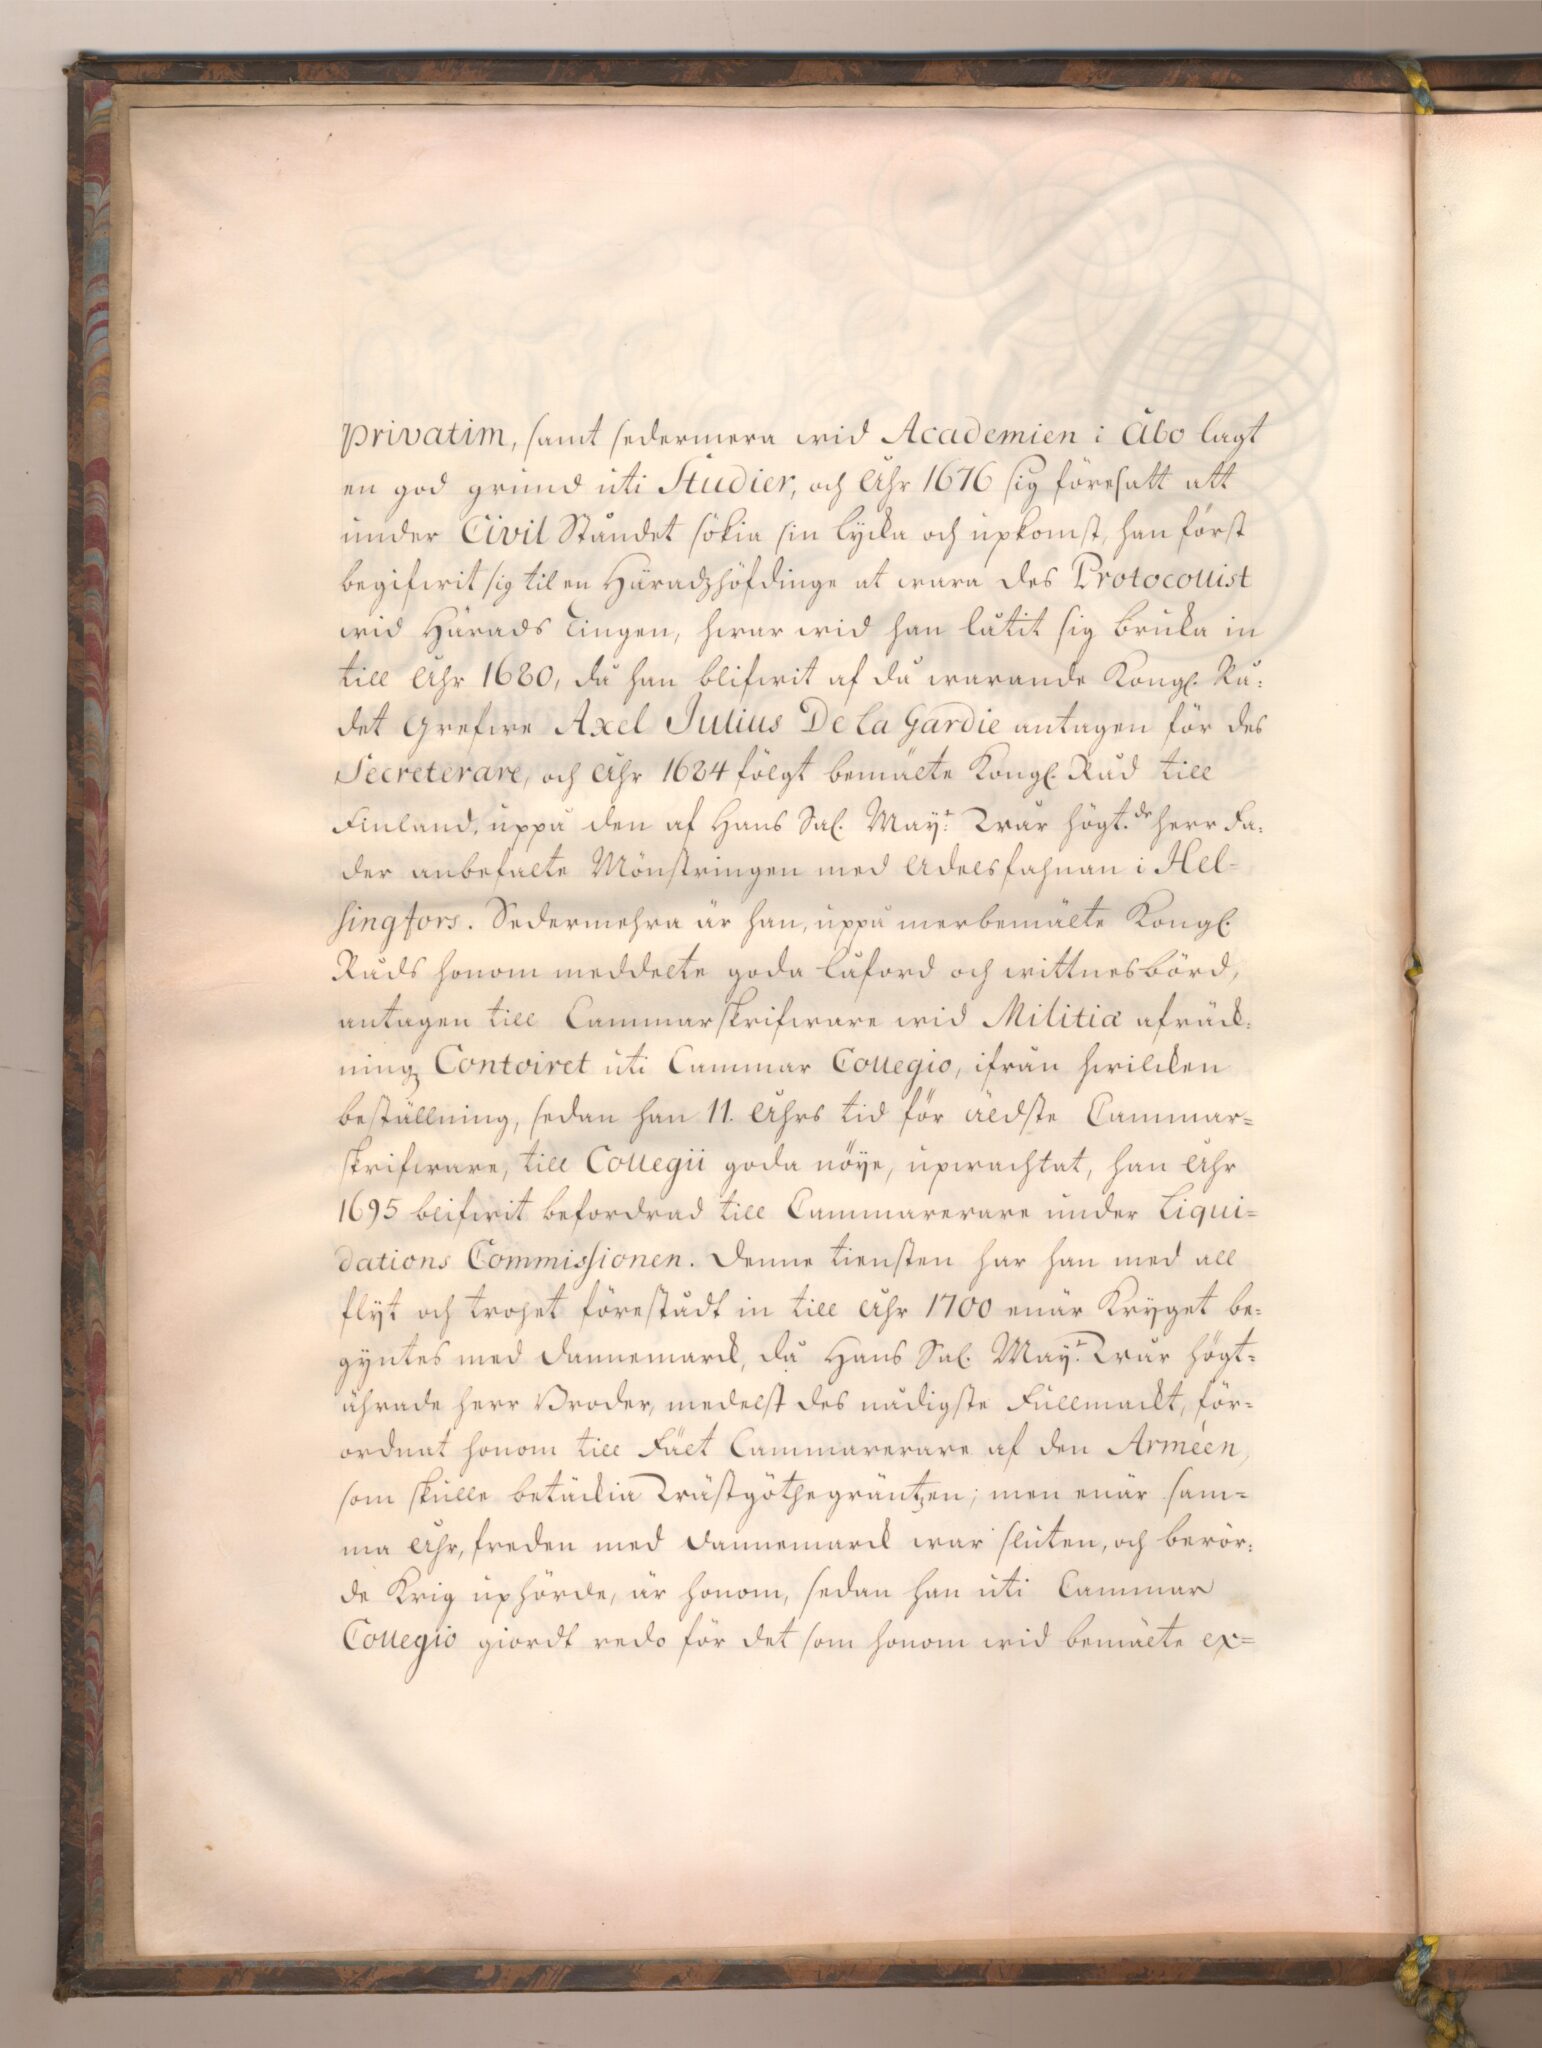 Privatim, samt sedermera wid Academien i Åbo lagt
en god grund uti Studier, och Åhr 1676 sig föresatt att
under Civil Ståndet sökia sin lycka och upkomst, han först
begifwit sig til en Häradzhöfdinge at wara des Protocollist
wid Härads Tingen, hwar wid han låtit sig bruka in
till Åhr 1680, då han blifwit af då warande Kongl. Rå-
det Grefwe Axel Julius De la Gardie antagen för des
Secreterare, och Åhr 1684 fölgt bemälte Kongl. Råd till
Finland, uppå den af Hans Sal. Mayt: Wår högt.de herr Fa-
der anbefalte Mönstringen med Adelsfahnan i Hel-
singfors. Sedermehra är han, uppå merbemälte Kongl.
Råds honom meddelte goda låford och wittnesbörd,
antagen till Cammarskrifware wid Militiæ afräck-
ning Contoiret uti Cammar Collegio, ifrån hwilcken
beställning, sedan han 11. Åhrs tid för äldste Cammar-
skrifware, till Collegii goda nöye, upwachtat, han Åhr
1695 blifwit befordrad till Cammarerare under Liqui-
dations Commissionen. Denne tiensten har han med all
flyt och trohet förestådt in till Åhr 1700 enär Kryget be-
gyntes med Dannemarck, då Hans Sal. Mayt: Wår högt-
ährade herr Broder, medelst des nådigste Fullmackt, för-
ordnat honom till Fält Cammarerare af den Arméen,
som skulle betäckia Wästgöthegräntzen; men enär sam-
ma Åhr, freden med Dannemarck war sluten, och berör-
de Krig uphörde, är honom, sedan han uti Cammar
Collegio giordt redo för det som honom wid bemälte ex-